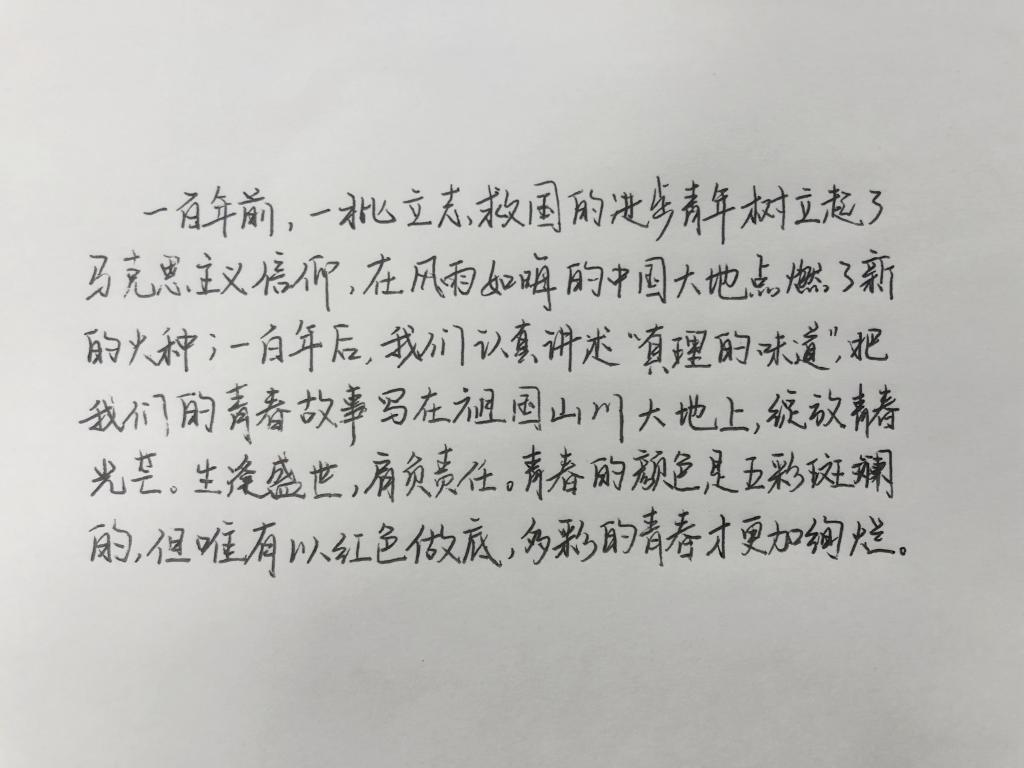 一百年前，一批立志救国的进步青年树立起了
马克思主义信仰，在风雨如晦的中国大地点燃了新
的火种；一百年后，我们认真讲述“真理的味道”，把
我们的青春故事写在祖国山川大地上，绽放青春
光芒。生逢盛世，肩负责任。青春的颜色是五彩斑斓
的，但唯有以红色做底，多彩的青春才更加绚烂。